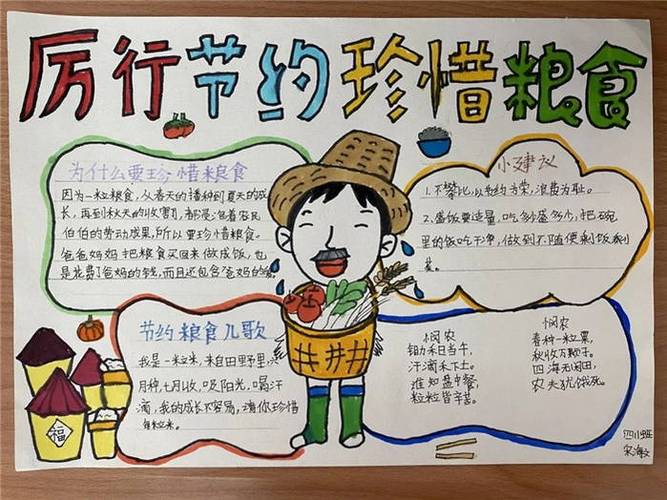 厉行节约珍惜粮食
为什么要珍惜粮食
因为一粒粮食,从春天的播种到夏天的成
长,再到秋天的收割,都浸泡着农民
伯伯的劳动成果,所以要珍惜粮食。
爸爸妈妈把粮食买回来做成饭,也
是花费了爸妈的钱,而且还包含爸妈的
小建议
1.不攀比,以节约为荣,浪费为耻。
2.盛饭要适量,吃多少盛多少,把碗
里的饭吃干净,做到不随便剩饭剩
菜。
节约粮食儿歌
我是一粒米,来自田野里,
月种七月收,吸阳光,喝汗
滴,我的成长不容易,请你珍惜
每粒米。
福
悯农
锄禾日当午,
汗滴禾下土。
谁知盘中餐,
粒粒皆辛苦。
悯农
春种一粒粟,
秋收万颗子。
四海无闲田,
农夫犹饿死。